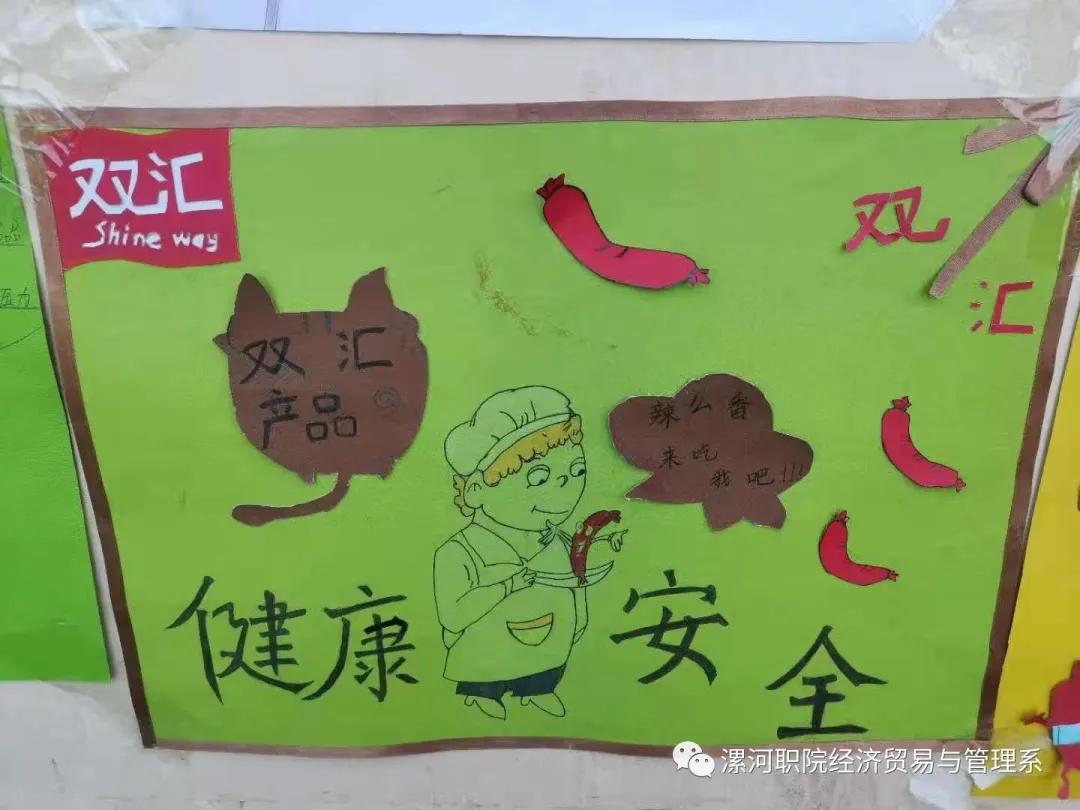 双汇
Shine way
双
汇
双汇
产品
辣么香
来吃
我吧!!!
健康安全
漯河职院经济贸易与管理系